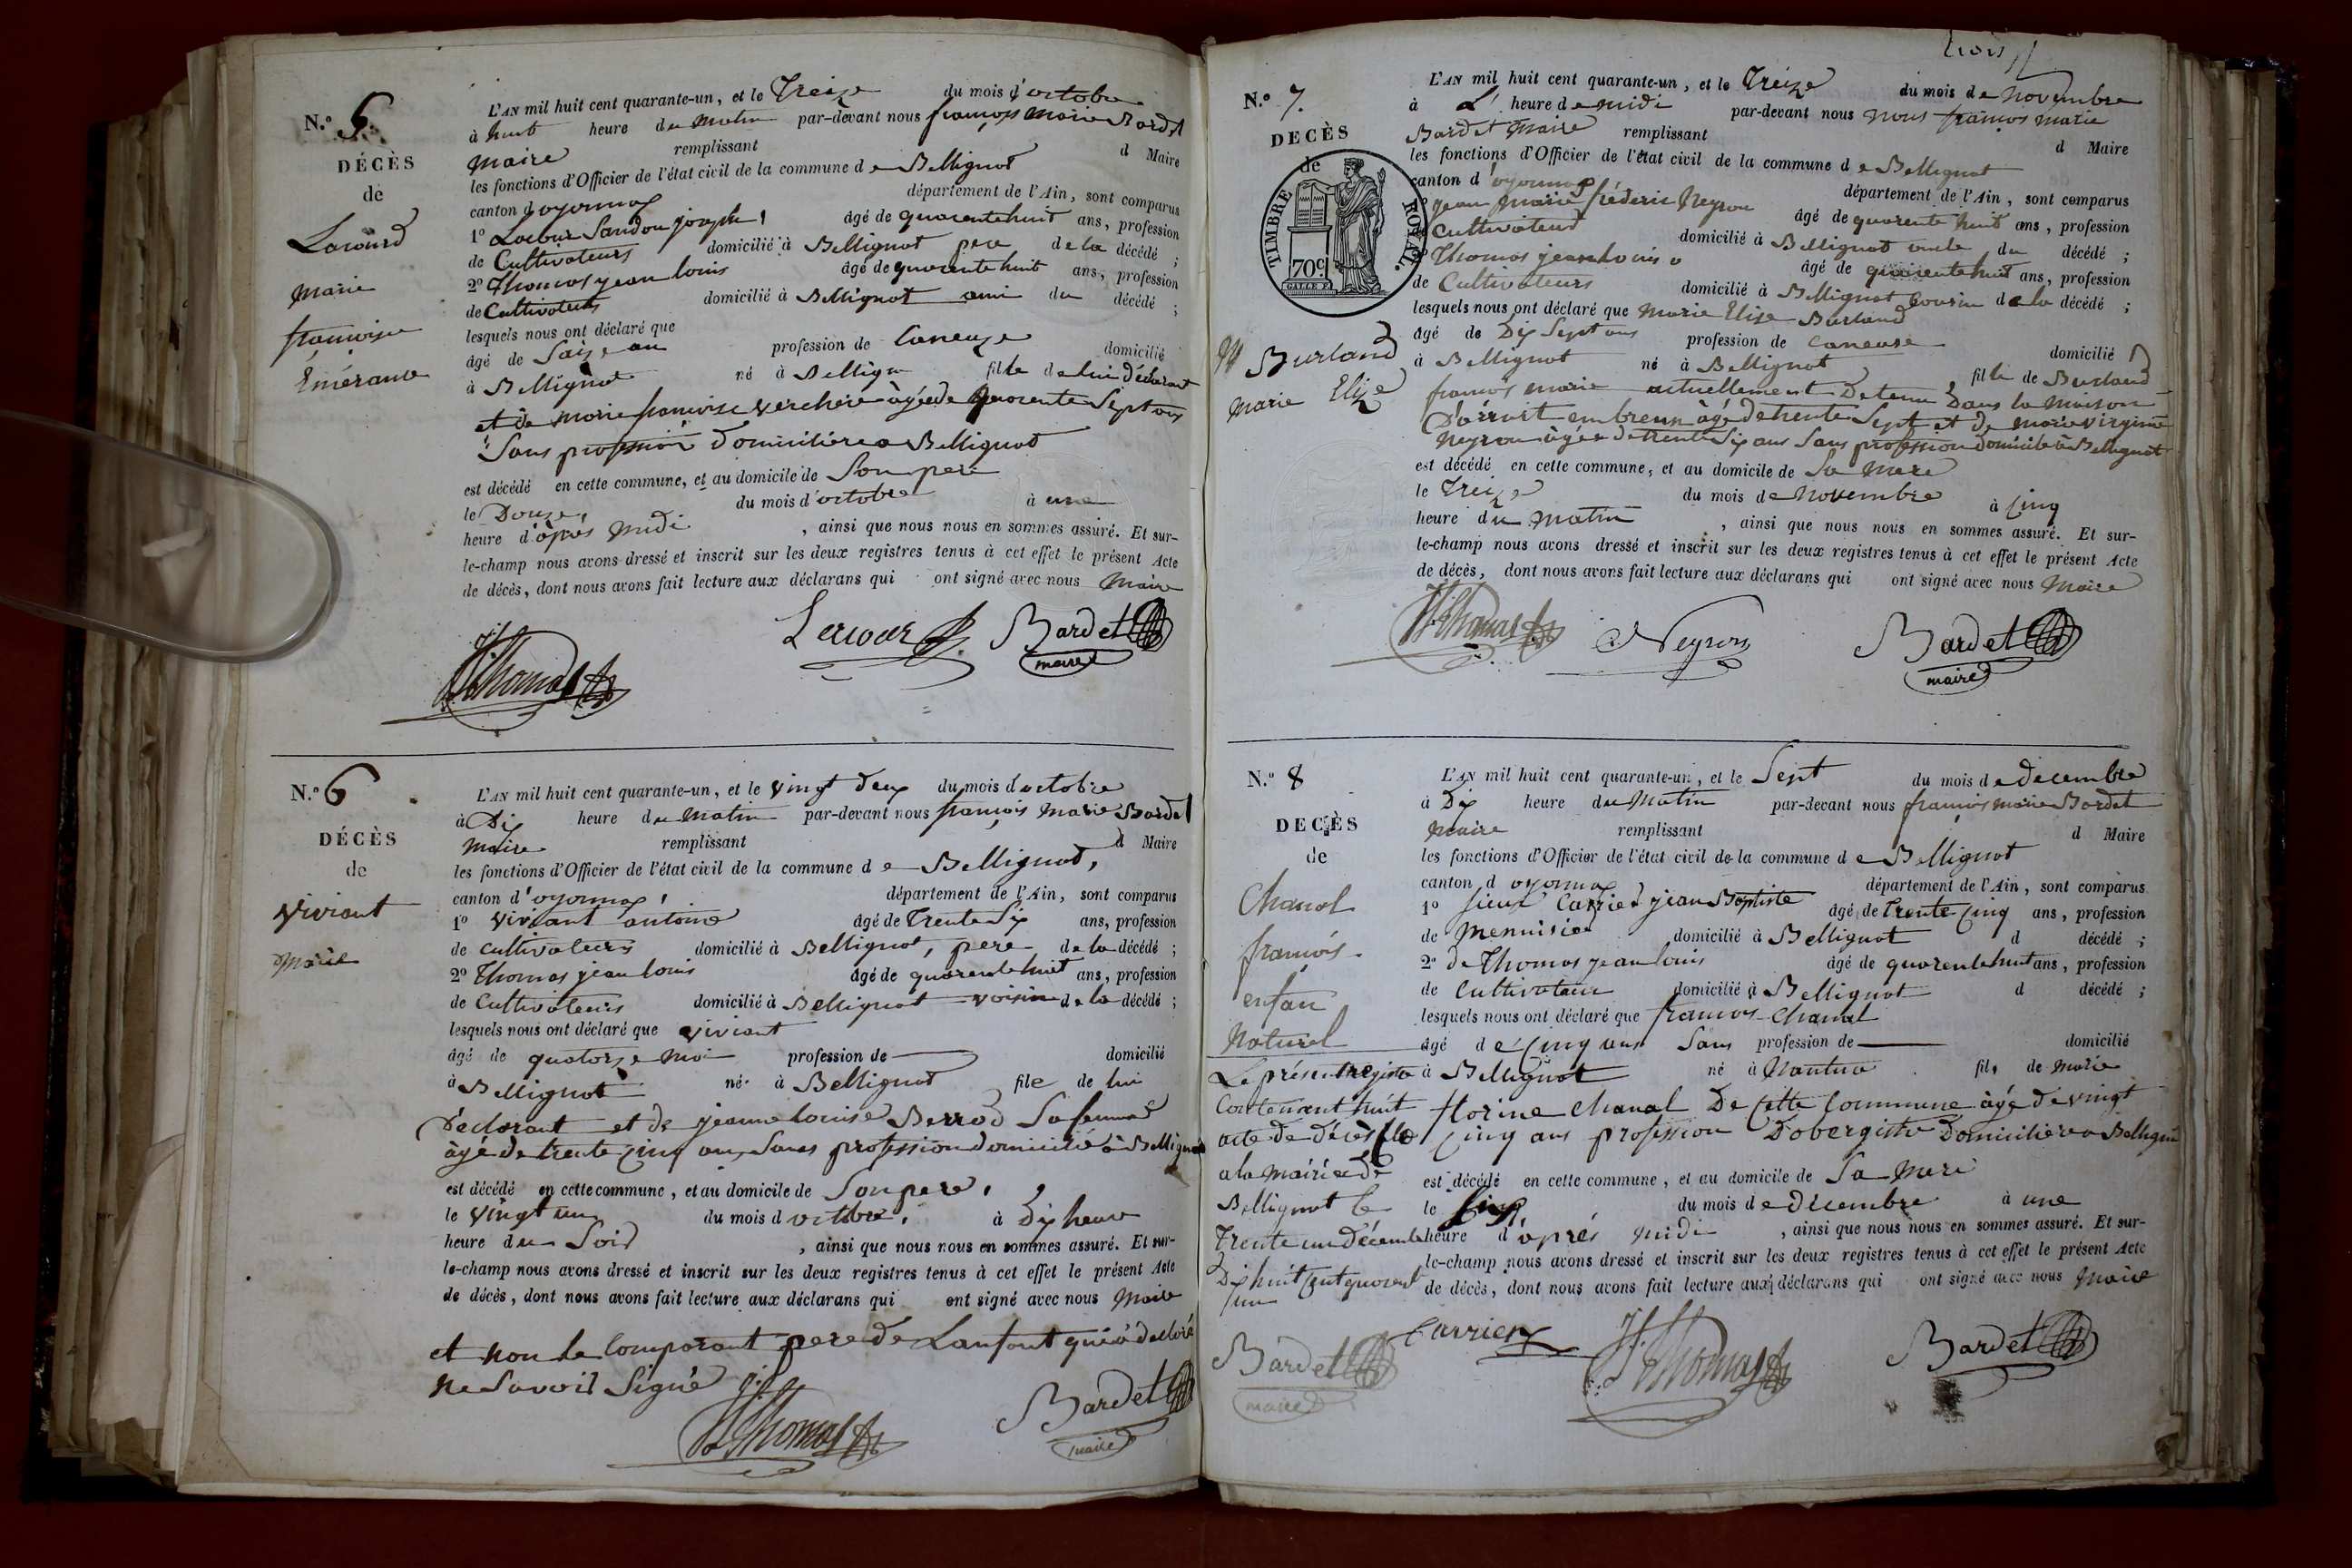 N.º 5.
DÉCÈS
de
marie
françoise
Émérance
L'AN mil huit cent quarante-un, et le Treize du mois d'octobre
à huit heure du matin par-devant nous françois marie Bardet
maire remplissant d Maire
les fonctions d'Officier de l'état civil de la commune de Bellignat
canton d'oyonnax département de l'Ain, sont comparus
1º joseph âgé de quarente huit ans, profession
de Cultivateurs domicilié à Bellignat pere de la décédé ;
2º Thomas jean louis âgé de quarente huit ans, profession
de Cultivateurs domicilié à Bellignat ami du décédé ;
lesquels nous ont déclaré que
âgé de Saize an profession de Caneuze domicilié
à Bellignat né à Bellign fille de lui déclarant
et de marie françoise verchere âgée de quarente Sept ans
Sans profession domicilière a Bellignat
est décédé en cette commune, et au domicile de Son pere
le Douze, du mois d'octobre à une
heure d'après midi , ainsi que nous nous en sommes assuré. Et sur-
le-champ nous avons dressé et inscrit sur les deux registres tenus à cet effet le présent Acte
de décès, dont nous avons fait lecture aux déclarans qui ont signé avec nous maire
Bardet
maire
Thomas
N.º 6
DÉCÈS
de
Viviant
Marie
L'AN mil huit cent quarante-un, et le vingt deux du mois d octobre
à Dix heure du matin par-devant nous françois marie Bardet
maire remplissant d Maire
les fonctions d'Officier de l'état civil de la commune de Bellignat,
canton d'oyonnax, département de l'Ain, sont comparus
1º viviant antoine âgé de Trente Six ans, profession
de cultivateurs domicilié à Bellignat, pere de la décédé ;
2º Thomas jean louis âgé de quarente huit ans, profession
de Cultivateurs domicilié à Bellignat voisin de la décédé ;
lesquels nous ont déclaré que viviant
âgé de quatorze moi profession de — domicilié
à Bellignat né à Bellignat file de lui
déclarant et de jeanne louise Berrod Sa femme
âgé de trente Cinq ans Sans profession domicilié à Bellignat
est décédé en cette commune, et au domicile de Son pere,
le vingt un du mois d octobre, à Dix heure
heure du Soir , ainsi que nous nous en sommes assuré. Et sur-
le-champ nous avons dressé et inscrit sur les deux registres tenus à cet effet le présent Acte
de décès, dont nous avons fait lecture aux déclarans qui ont signé avec nous Maire
et non le comparant pere de Lanfant qui a declaré
ne Savoir Signé
Thomas
Bardet
maire
trois
N.º 7.
DECÈS
de
TIMBRE ROYAL.
70c
Burland
Marie Elize
L'AN mil huit cent quarante-un, et le Treize du mois de Novembre
à L' heure de midi par-devant nous nous françois marie
Bardet Maire remplissant d Maire
les fonctions d'Officier de l'état civil de la commune de Bellignat
canton d'oyonnax département de l'Ain, sont comparus
jean marie fréderic Neyron âgé de quarente huit ans, profession
Cultivateurs domicilié à Bellignat oncle du décédé ;
Thomas jean louis âgé de quarente huit ans, profession
de Cultivateurs domicilié à Bellignat cousin de la décédé ;
lesquels nous ont déclaré que Marie Elize Burland
âgé de Dix Sept ans profession de Caneuse domicilié
à Bellignat né à Bellignat fille de Burland
françois marie actuellement Detenu Dans la maison
D'arrait âgé de trente Sept et de marie virginie
Neyron âgée de trente Six ans Sans profession domicile à Bellignat
est décédé en cette commune, et au domicile de Sa mere
le Treize du mois de Novembre à Cinq
heure du matin , ainsi que nous nous en sommes assuré. Et sur-
le-champ nous avons dressé et inscrit sur les deux registres tenus à cet effet le présent Acte
de décès, dont nous avons fait lecture aux déclarans qui ont signé avec nous Maire
Thomas
Neyron
Bardet
maire
N.º 8
DECÈS
de
Chanal
françois
enfan
Naturel
Le présent Registre
Contenant huit
acte de décès
a la mairie de
Bellignat le
Trente un Décembre
Dix huit Cent quarent
un
Bardet
maire
L'AN mil huit cent quarante-un, et le Sept du mois de decembre
à Dix heure du Matin par-devant nous françois marie Bardet
Maire remplissant d Maire
les fonctions d'Officier de l'état civil de la commune de Bellignat
canton d oyonnax département de l'Ain, sont comparus
1º Carrier jean Baptiste âgé de trente Cinq ans, profession
de Menuisier domicilié à Bellignat d décédé ;
2º de Thomas jean louis âgé de quarente huit ans, profession
de Cultivateur domicilié à Bellignat d décédé ;
lesquels nous ont déclaré que francois Chanal
âgé de Cinq ans Sans profession de — domicilié
à Bellignat né à Nantua fils de marie
florine Chanal De Cette Commune âgé de vingt
Cinq ans profession Dobergiste Domiciliere a Bellignat
est décédé en cette commune, et au domicile de Sa Mere
le du mois de decembre à une
heure d'après midi , ainsi que nous nous en sommes assuré. Et sur-
le-champ nous avons dressé et inscrit sur les deux registres tenus à cet effet le présent Acte
de décès, dont nous avons fait lecture aux déclarans qui ont signé avec nous Maire
Carrier
Thomas
Bardet